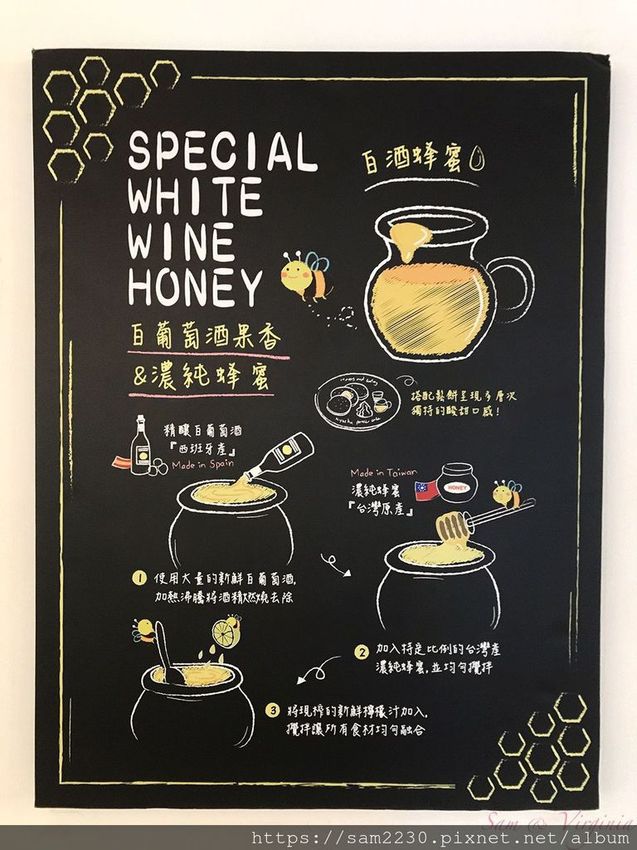 SPECIAL
WHITE
WINE
HONEY
白酒蜂蜜
白葡萄酒果香
&濃純蜂蜜
搭配鬆餅呈現多層次
獨特的酸甜口感!
精釀白葡萄酒
『西班牙產』
Made in Spain
Made in Taiwan
濃純蜂蜜
『台灣原產』
HONEY
1 使用大量的新鮮白葡萄酒,
加熱沸騰將酒精燃燒去除
2 加入特定比例的台灣產
濃純蜂蜜,並均勻攪拌
3 將現榨的新鮮檸檬汁加入,
攪拌讓所有食材均勻融合
Sam & Virginia
https://sam2230.pixnet.net/album